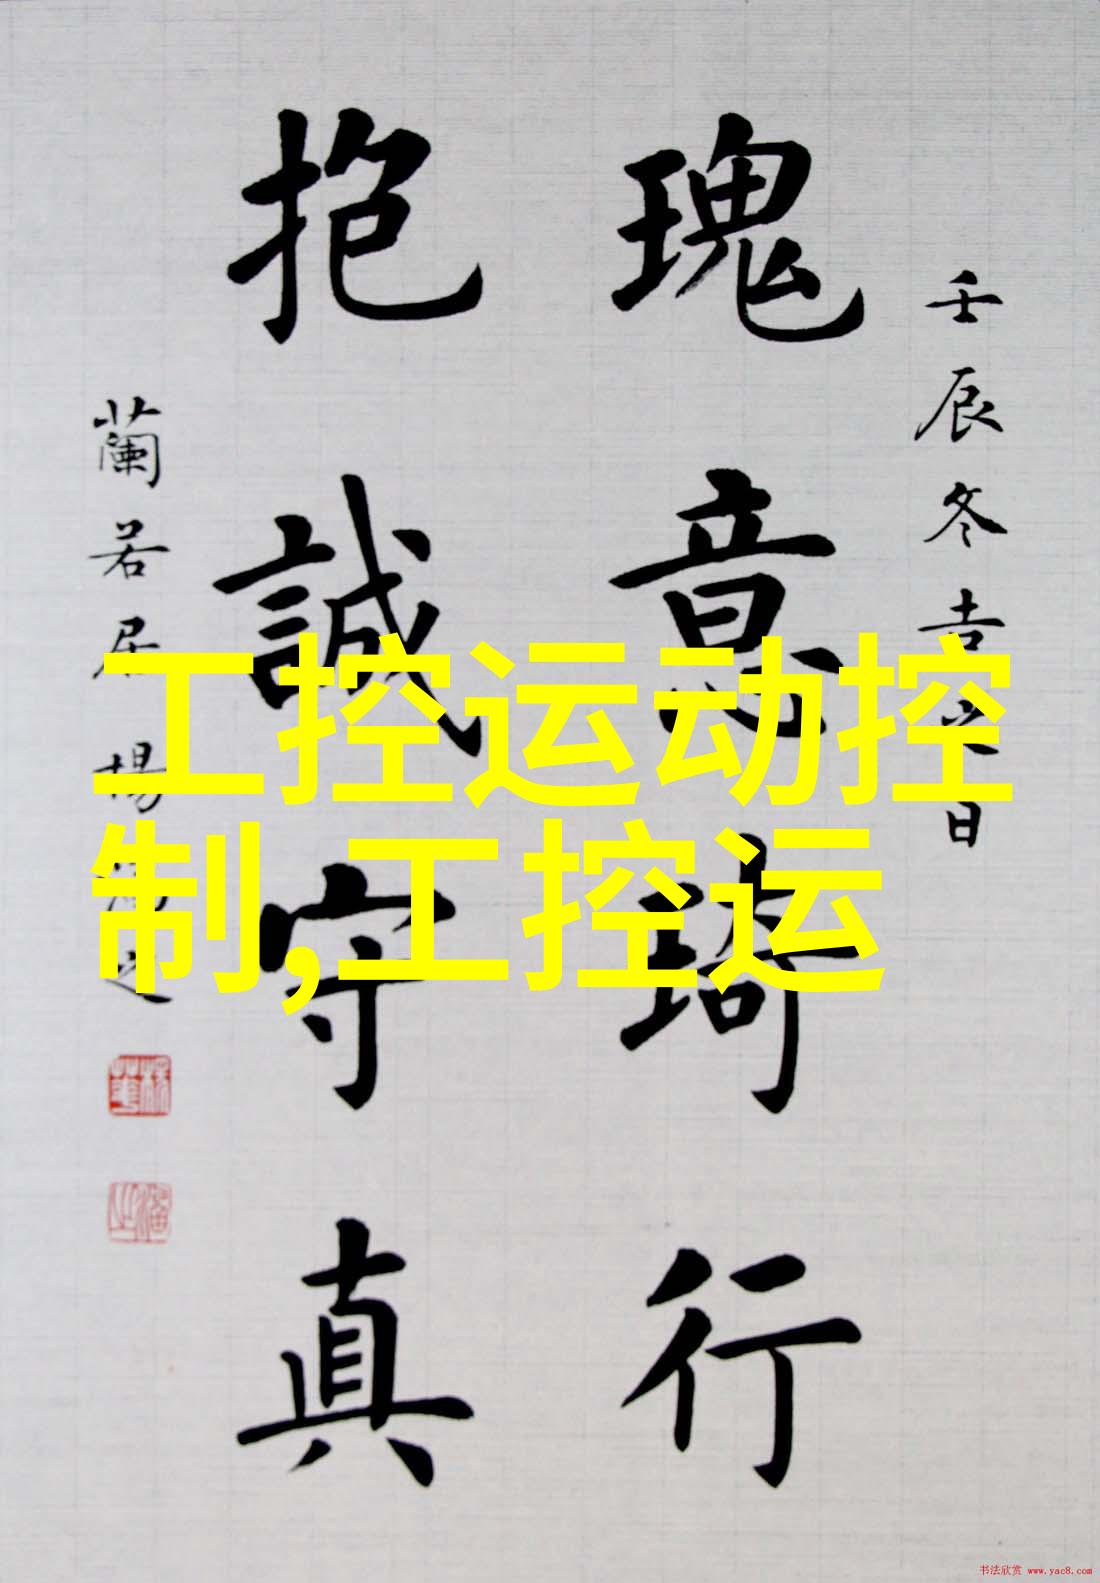 壬辰冬吉之日
瑰意琦行
抱誠守真
蘭若居楊
工控运动控
制,工控运
书法欣赏 www.yac8.com